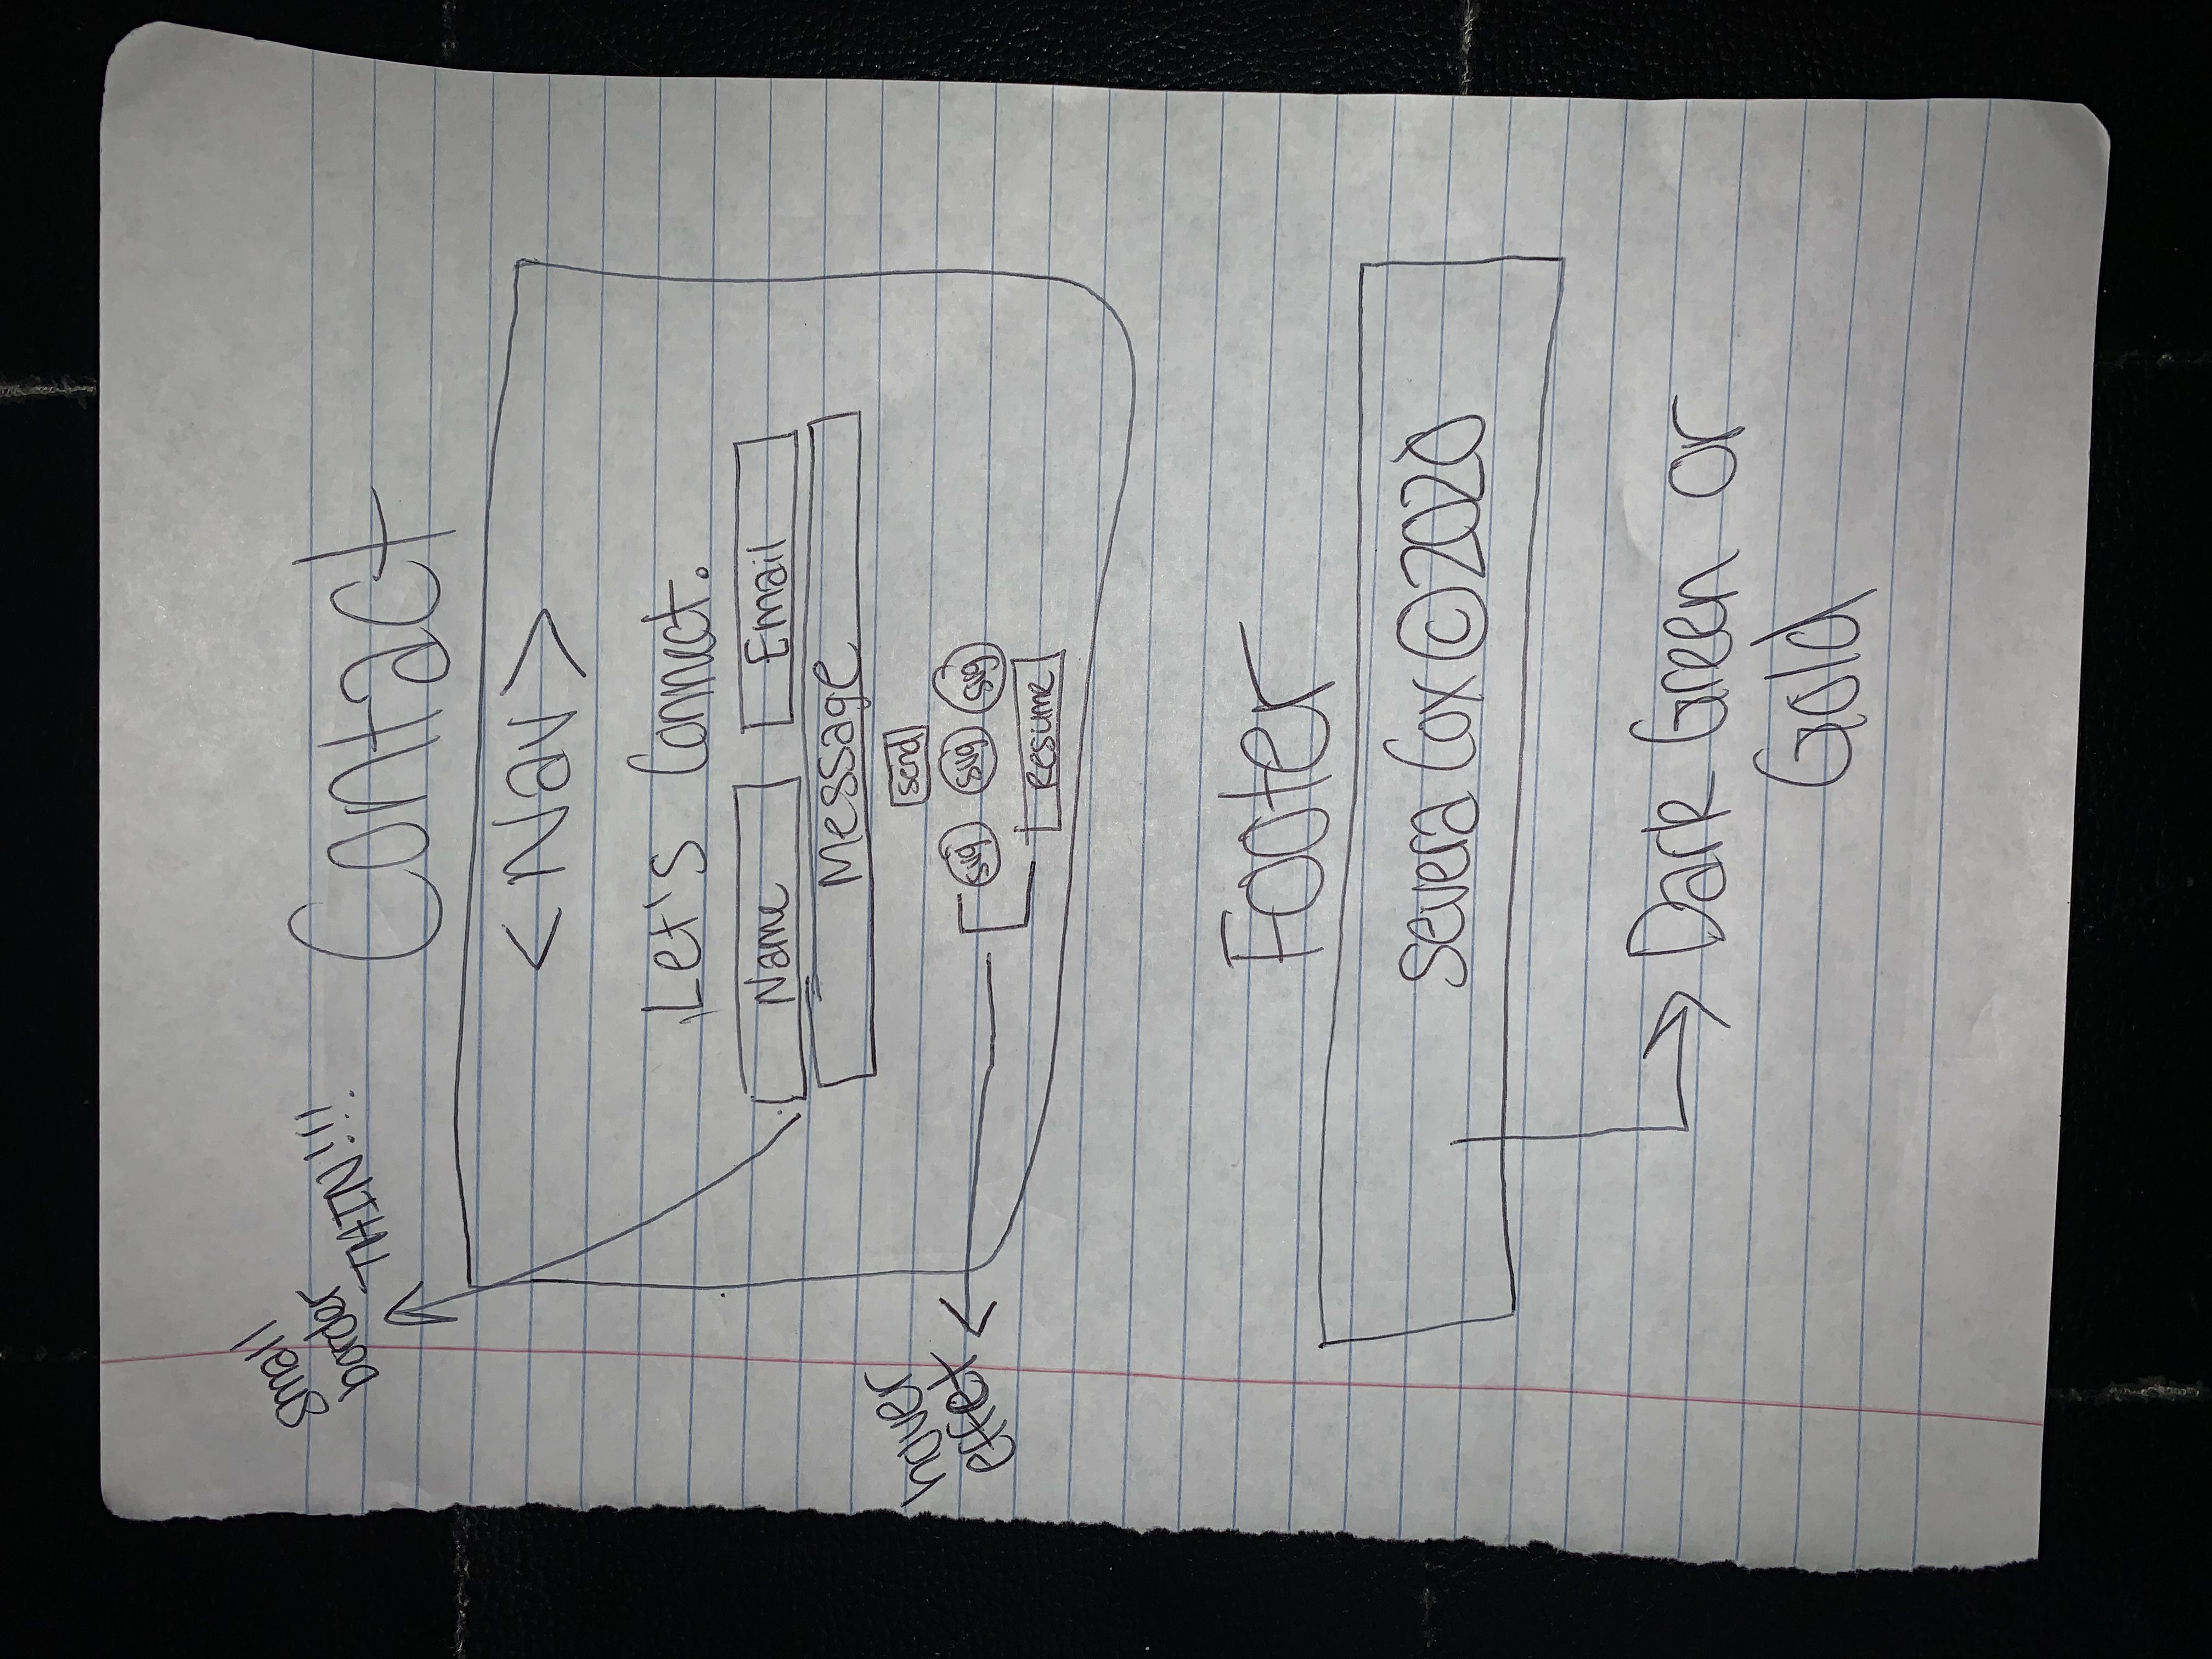 small
border
THIN!!!
Contact
<Nav>
Let's Connect.
Name Email
Message
send
hover
effet
svg svg svg
Resume
Footer
Severa Cox ©2020
Dark Green or
Gold